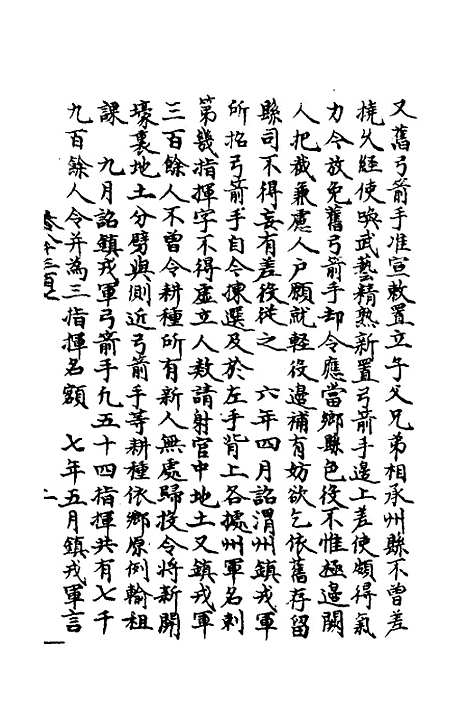 又舊弓箭手准宣敕置立午父兄弟相承州縣不曾差
撓久經使喚武藝精熟新置弓箭手邊上差使頗得氣
力今放免舊弓箭手却令應當鄉縣色役不惟極邊闕
人把截兼慮人户願就輕役邊補有妨欲乞依舊存留
縣司不得妄有差役從之　六年四月詔渭州鎮戎軍
所招弓箭手自今揀選及於左手背上各據州軍名刺
第幾指揮字不得虛立人數請射官中地土又鎮戎軍
三百餘人不曾令耕種所有新人無處歸投令將新開
壕裏地土分劈與側近弓箭手等耕種依鄉原例輸租
課　九月詔鎮戎軍弓箭手凡五十四指揮共有七千
九百餘人令并為三指揮名額　七年五月鎮戎軍言